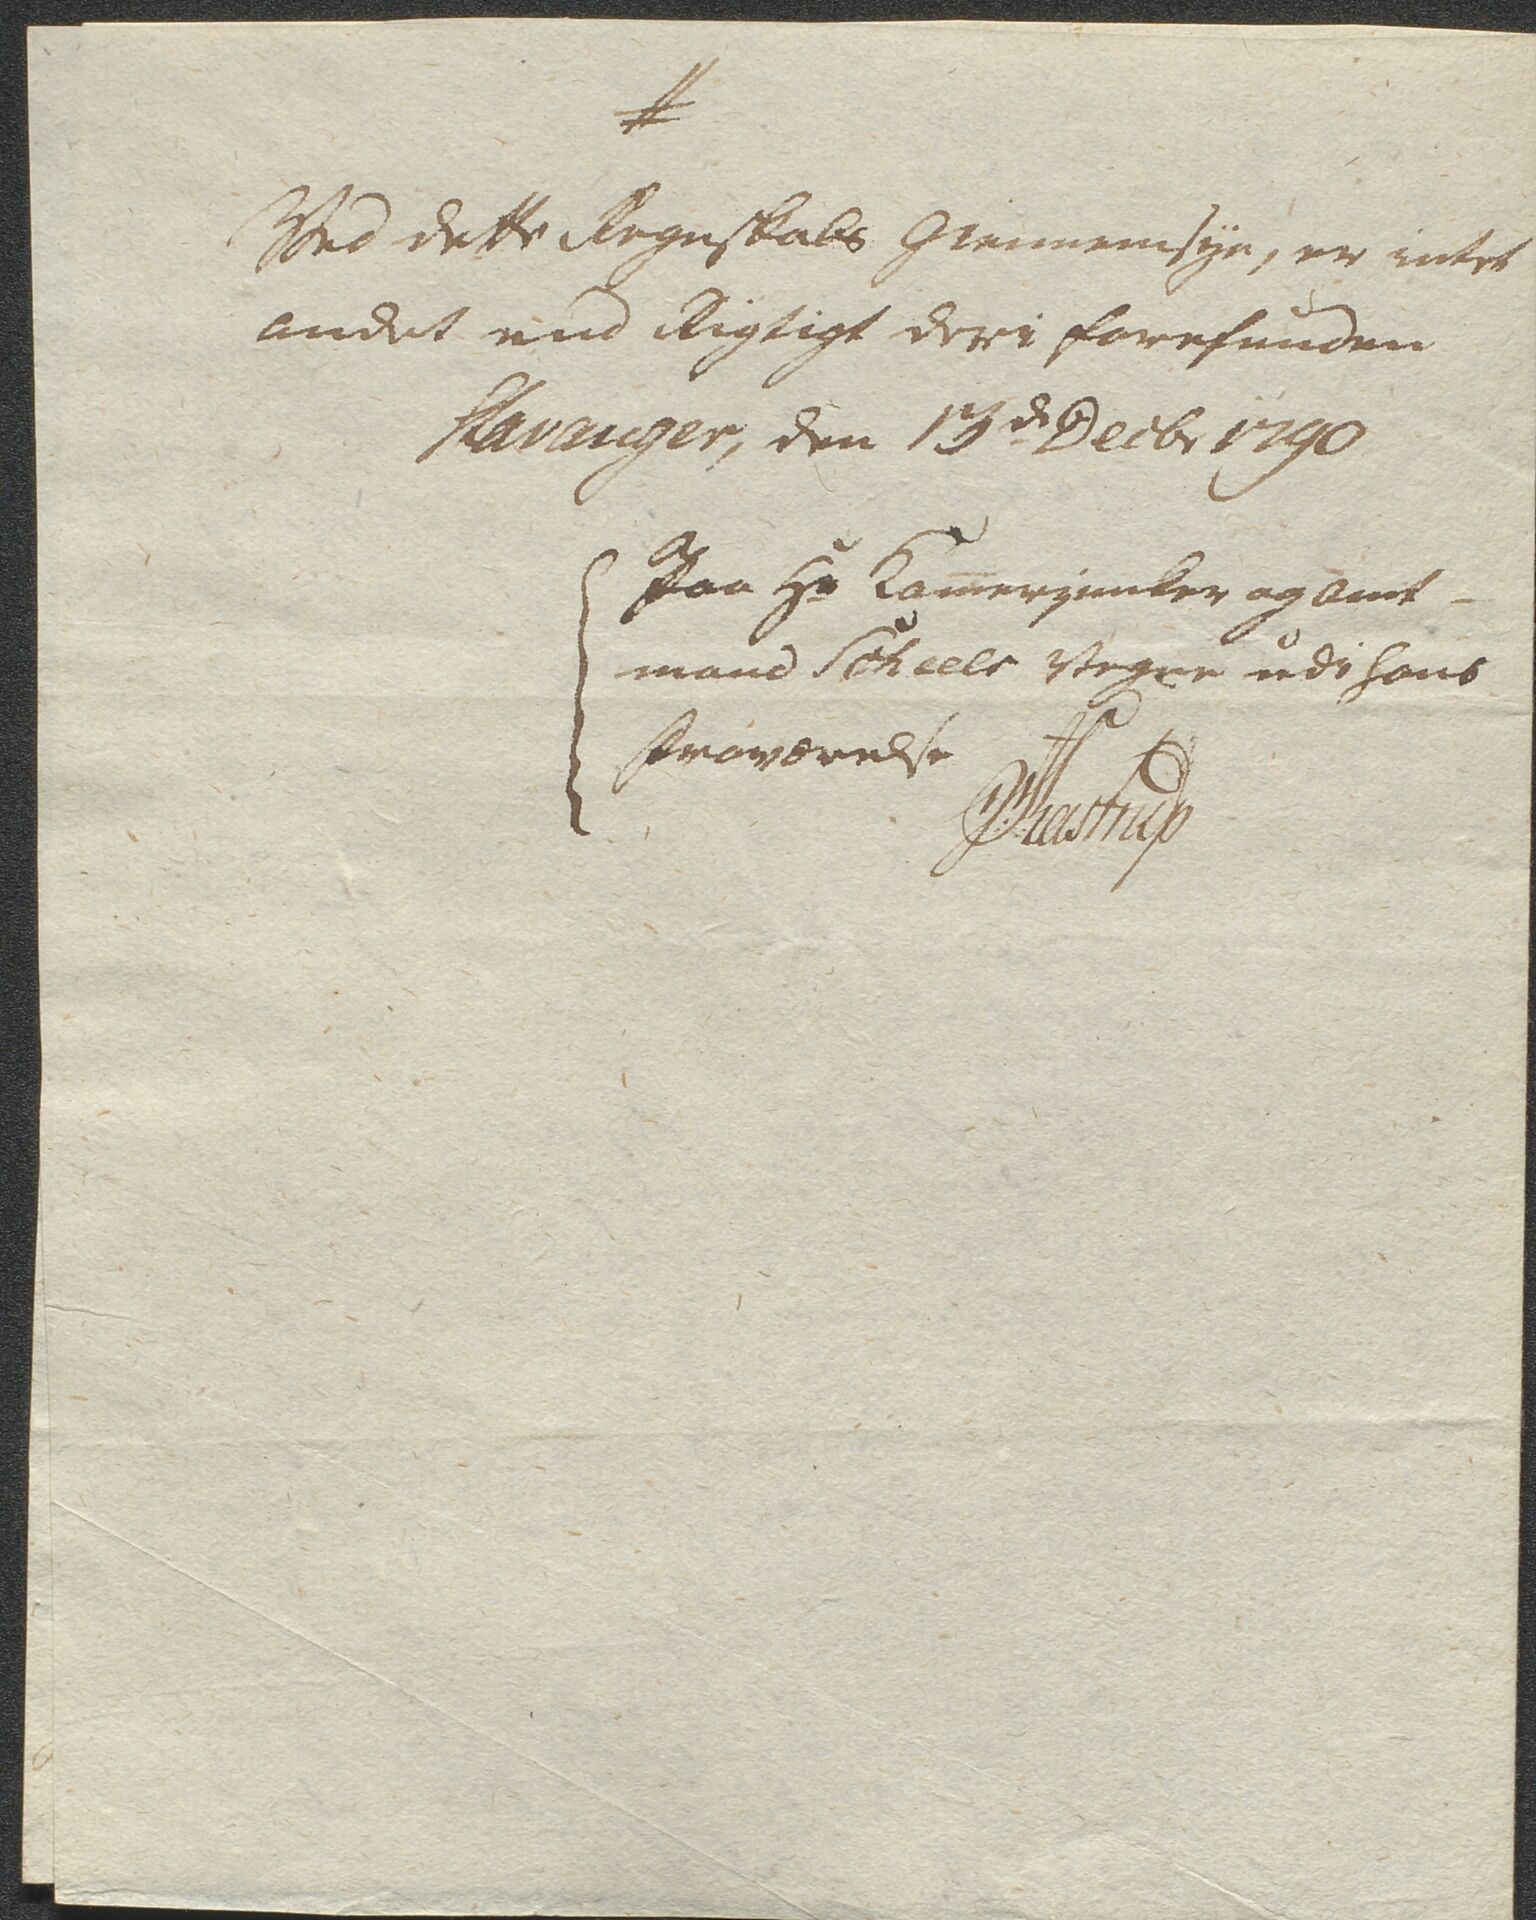 #
Ved dette Regnskabs Giennemsÿn, er intet
andet end Rigtigt deri forefunden
Stavanger, den 13de Decbr 1790
Paa Hr Kamerjunker og Amt-
mand Scheels Vegne udi hans
Fraværelse